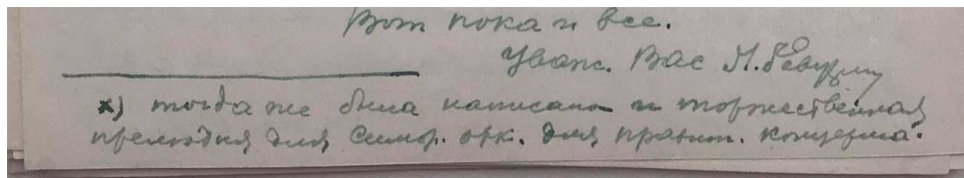 Вот пока и все.
Уваж. Вас М. Ревуцки
х) тогда же была написана и торжественная
прелюдия для симф. орк. для правит. концерта.